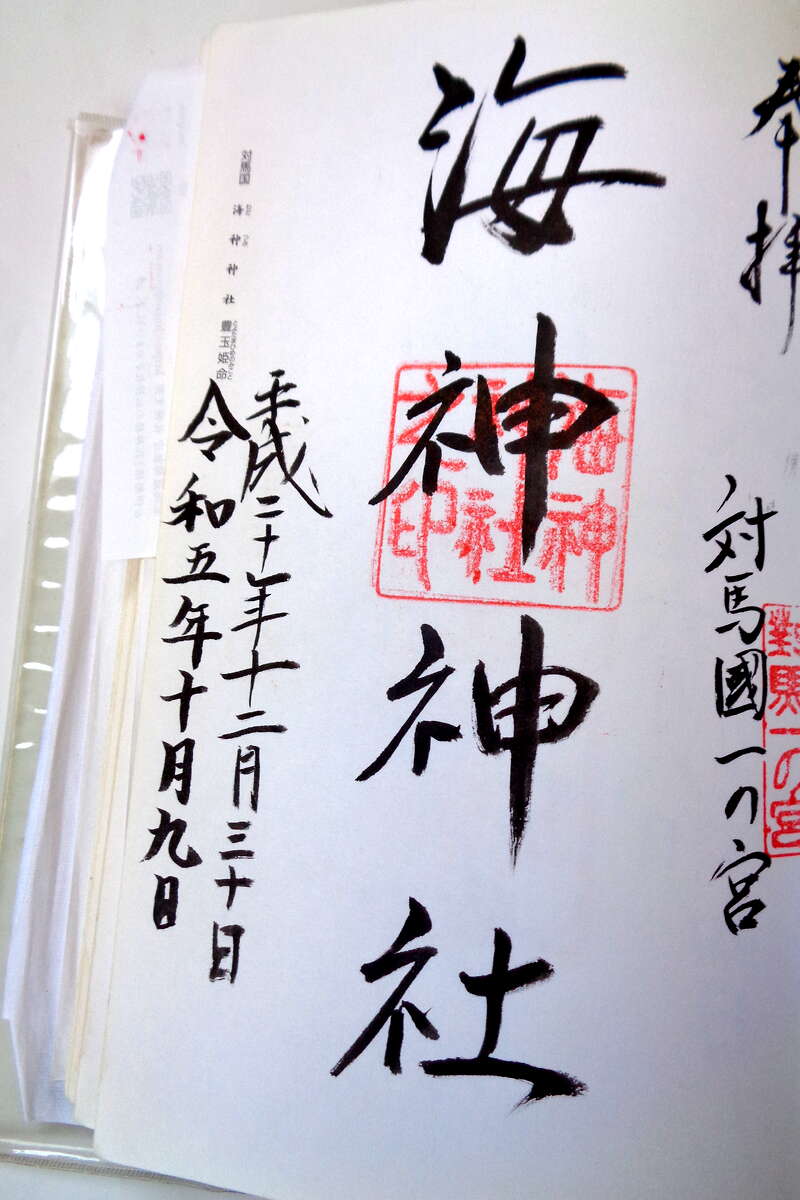 奉拝
対馬國一の宮
對馬一の宮
海神神社
海神
神社
之印
平成二十年十二月三十日
令和五年十月九日
対馬国 海神神社 豊玉姫命